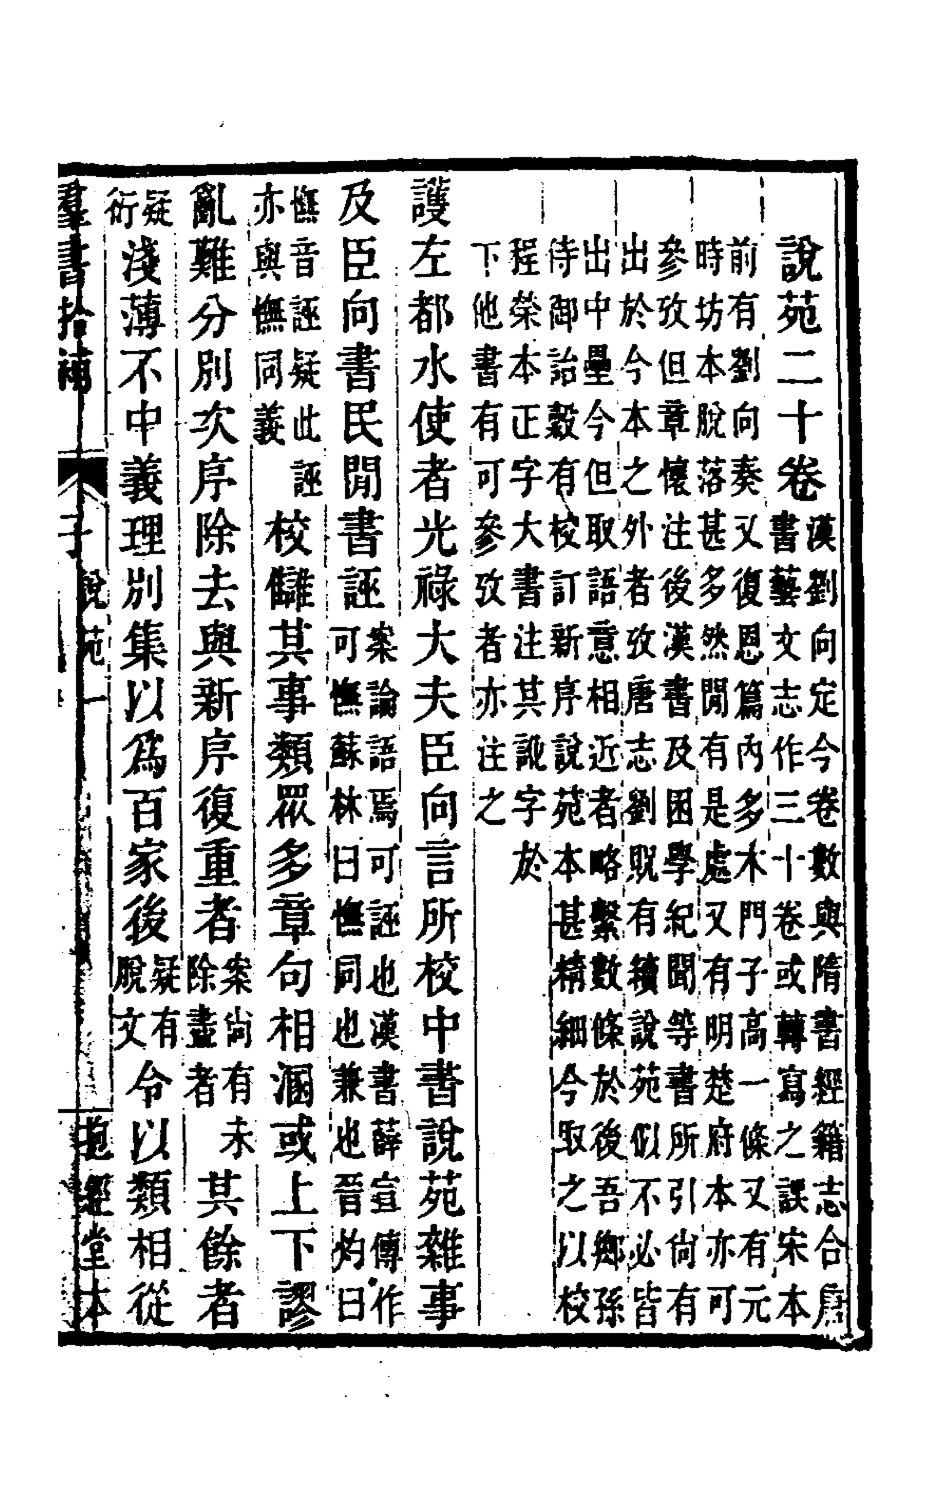 說苑二十卷
漢劉向定今卷數與隋書經籍志合唐
書藝文志作三十卷或轉寫之誤宋本
前有劉向奏又復恩篇內多木門子高一條又有元
時坊本脫落甚多然閒有是處又有明楚府本亦可
參攷但章懷注後漢書及困學紀聞等書所引尙有
出於今本之外者攷唐志劉貺有續說苑似不必皆
出中壘今但取語意相近者略繫數條於後吾鄉孫
侍御詒穀有校訂新序說苑本甚精細今取之以校
程榮本正字大書注其訛字於
下他書有可參攷者亦注之
護左都水使者光祿大夫臣向言所校中書說苑雜事
及臣向書民閒書誣
案論語焉可誣也漢書薛宣傳作
可憮蘇林曰憮同也兼也晉灼曰
憮音誣疑此誣
亦與憮同義
校讎其事類眾多章句相溷或上下謬
亂難分別次序除去與新序復重者
案尙有未
除盡者
其餘者
疑
衍
淺薄不中義理別集以爲百家後
疑有
脫文
令以類相從
羣書拾補
子
說苑一
抱經堂本